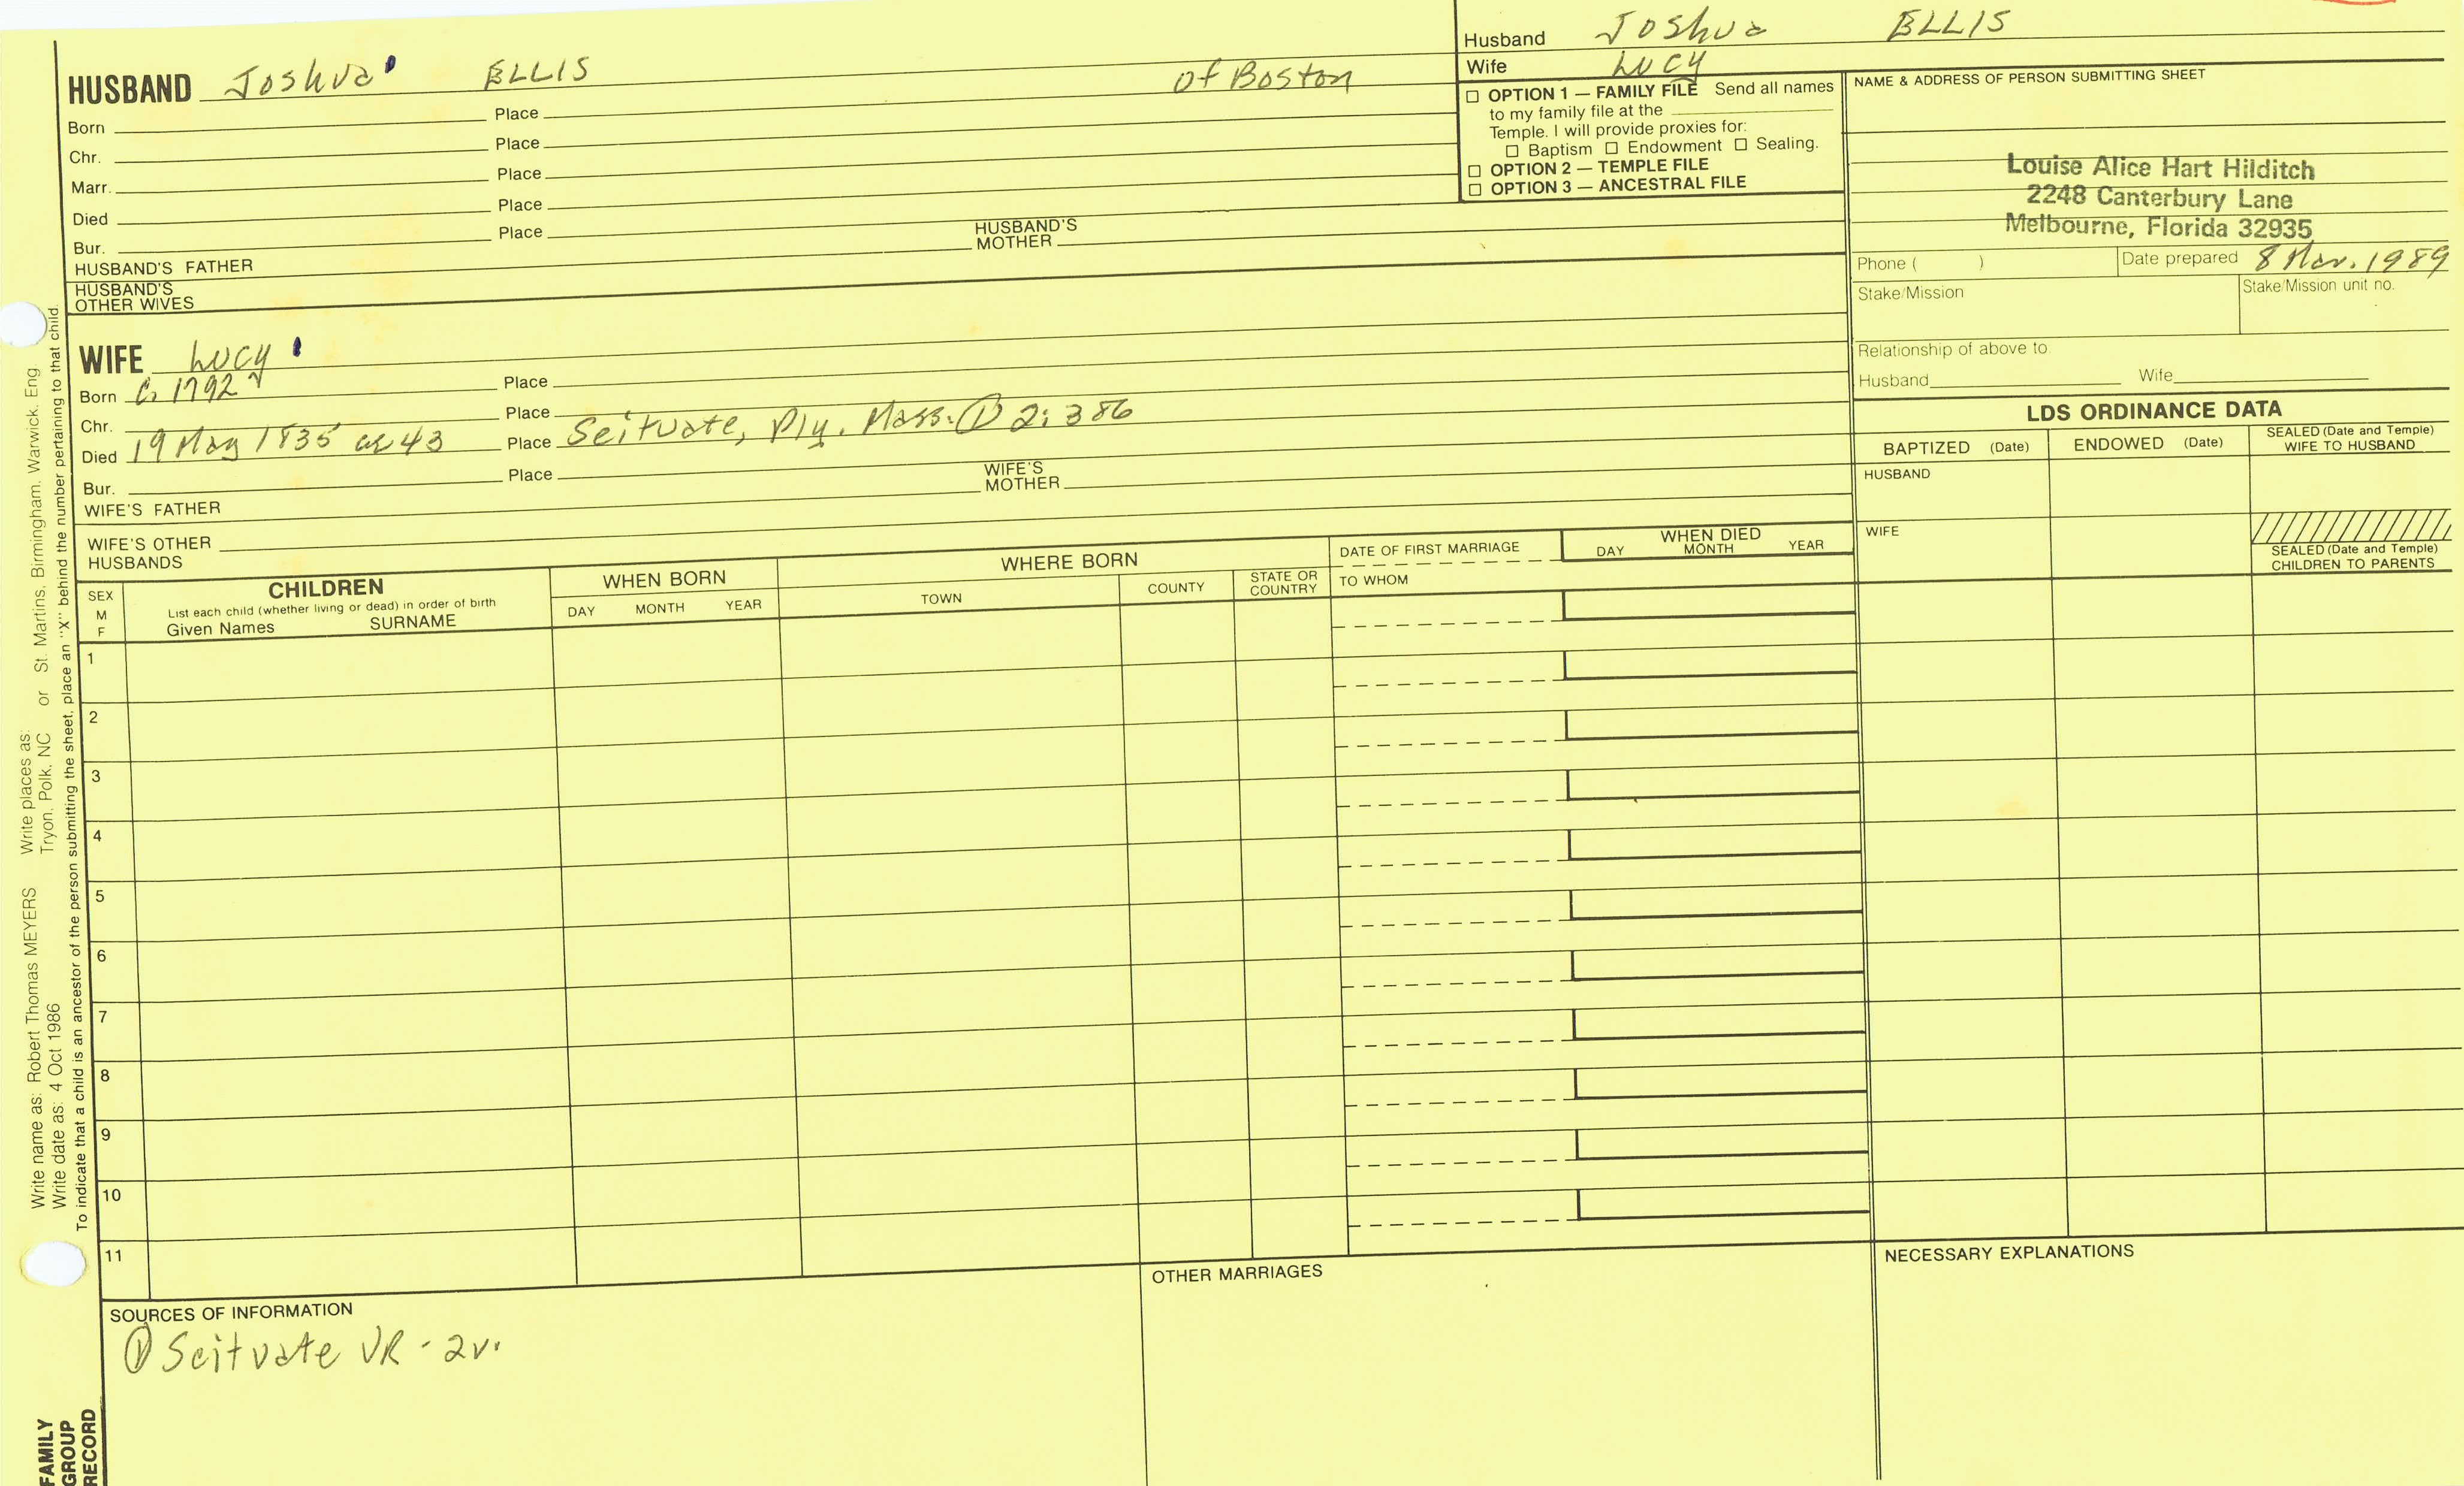 Husband Joshua ELLIS
Wife Lucy
HUSBAND Joshua ELLIS of Boston
Born Place
Chr. Place
Marr. Place
Died Place
Bur. Place
HUSBAND'S FATHER HUSBAND'S MOTHER
HUSBAND'S OTHER WIVES
☐ OPTION 1 — FAMILY FILE Send all names
to my family file at the
Temple. I will provide proxies for:
☐ Baptism ☐ Endowment ☐ Sealing.
☐ OPTION 2 — TEMPLE FILE
☐ OPTION 3 — ANCESTRAL FILE
NAME & ADDRESS OF PERSON SUBMITTING SHEET
Louise Alice Hart Hilditch
2248 Canterbury Lane
Melbourne, Florida 32935
Phone ( ) Date prepared 8 Mar. 1989
Stake/Mission Stake/Mission unit no.
Relationship of above to
Husband Wife
WIFE Lucy
Born C. 1792 Place
Chr. Place
Died 19 May 1835 ae 43 Place Scituate, Ply. Mass. ① 2:386
Bur. Place
WIFE'S FATHER WIFE'S MOTHER
WIFE'S OTHER HUSBANDS
LDS ORDINANCE DATA
BAPTIZED (Date) ENDOWED (Date) SEALED (Date and Temple) WIFE TO HUSBAND
HUSBAND
WIFE
SEALED (Date and Temple) CHILDREN TO PARENTS
SEX M F
CHILDREN
List each child (whether living or dead) in order of birth
Given Names SURNAME
WHEN BORN
DAY MONTH YEAR
WHERE BORN
TOWN COUNTY STATE OR COUNTRY
DATE OF FIRST MARRIAGE
TO WHOM
WHEN DIED
DAY MONTH YEAR
1
2
3
4
5
6
7
8
9
10
11
SOURCES OF INFORMATION
① Scituate VR - 2v.
OTHER MARRIAGES
NECESSARY EXPLANATIONS
Write name as: Robert Thomas MEYERS Write places as: Tryon, Polk, NC or St. Martins, Birmingham, Warwick, Eng
Write date as: 4 Oct 1986
To indicate that a child is an ancestor of the person submitting the sheet, place an "X" behind the number pertaining to that child.
FAMILY
GROUP
RECORD